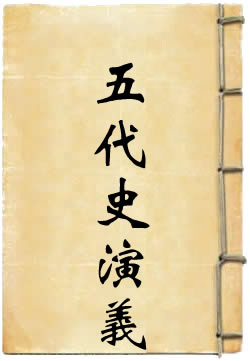 五代史演義